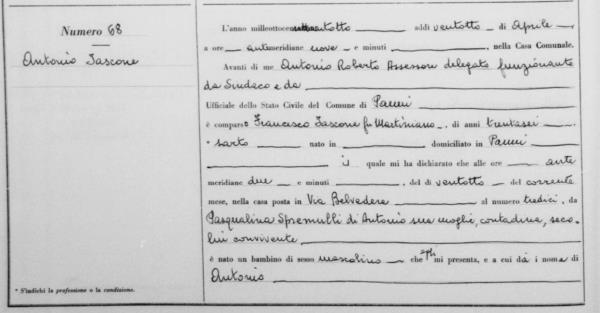 Numero 68
Antonio Iascone
* S'indichi la professione o la condizione.
L'anno milleottocentottantotto addì ventotto di Aprile,
a ore antimeridiane nove e minuti , nella Casa Comunale.
Avanti di me Antonio Roberto Assessore delegato funzionante
da Sindaco e da
Ufficiale dello Stato Civile del Comune di Panni
è comparso Francesco Iascone fu Martiniano, di anni trentasei,
* sarto nato in domiciliato in Panni
, il quale mi ha dichiarato che alle ore ante
meridiane due e minuti , del dì ventotto del corrente
mese, nella casa posta in Via Belvedere al numero tredici, da
Pasqualina Spremulli di Antonio sua moglie, contadina, seco-
lui convivente
è nato un bambino di sesso mascolino che egli mi presenta, e a cui dà i nome di
Antonio